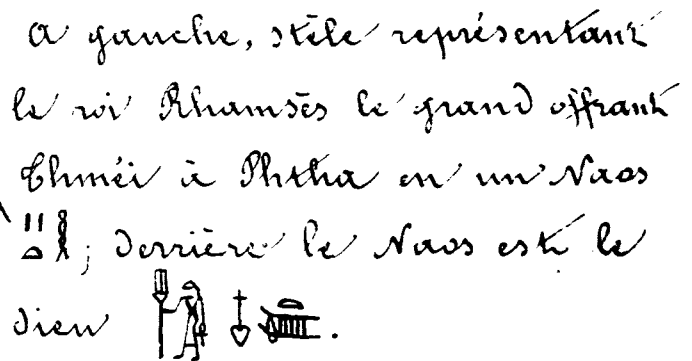 A gauche, stèle représentant
le roi Rhamsès le grand offrant
Thméi à Phtha en un Naos
; derrière le Naos est le
dieu .